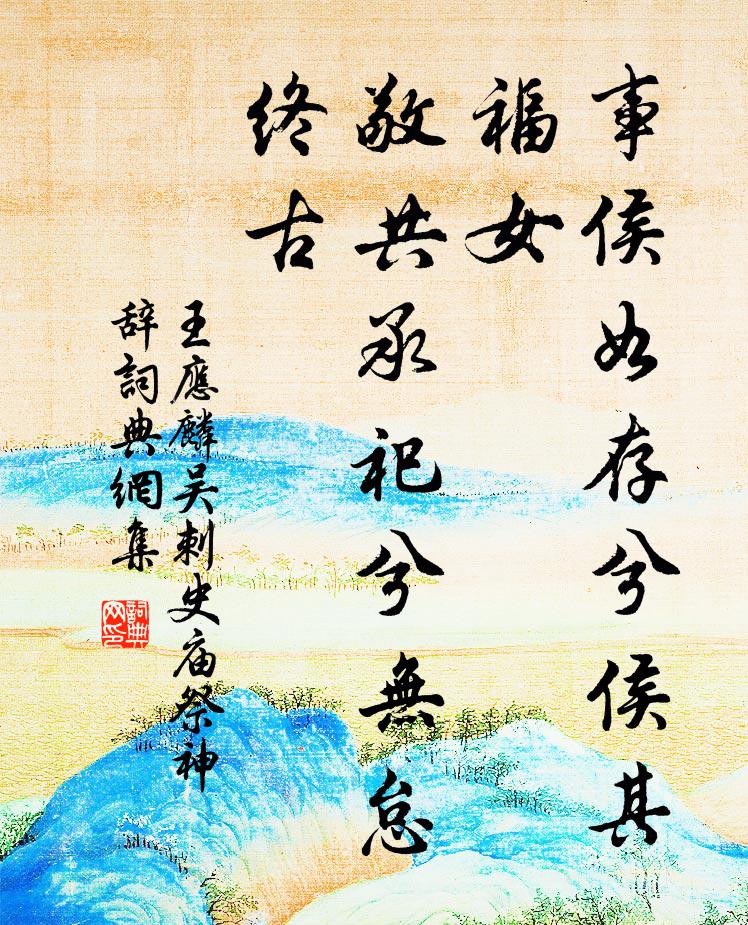 事侯如存兮侯其
福女
敬共承祀兮無怠
终古
王應麟吴刺史庙祭神
辞詞典網集
詞典
网印